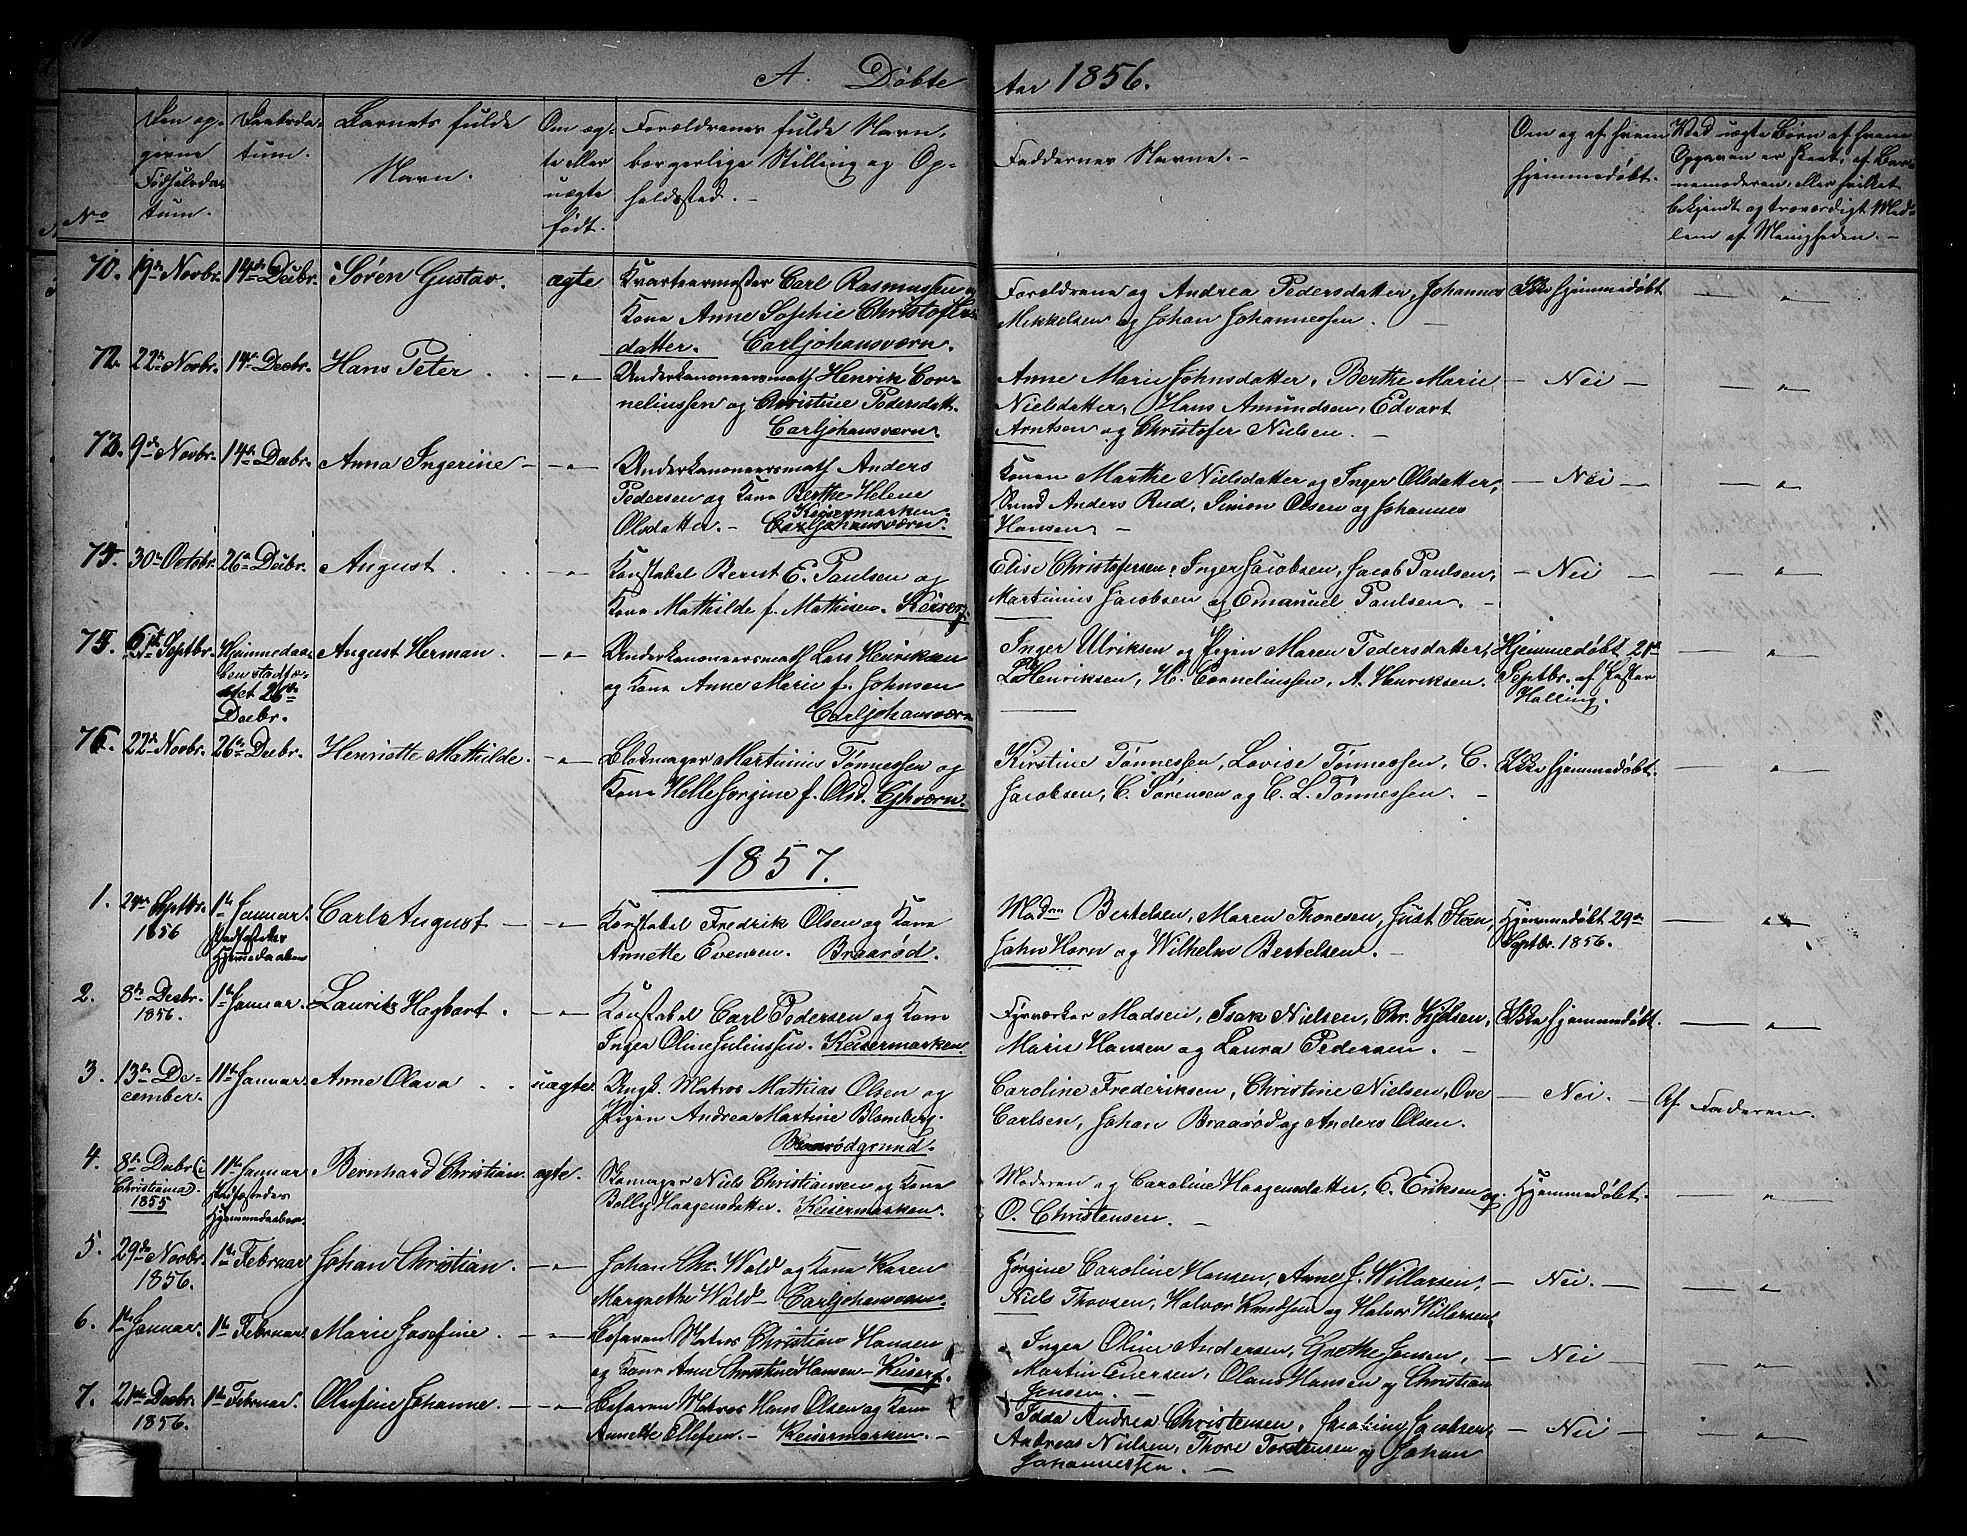 A. Døbte
Aar 1856.
No
Den op-
givne
Fødselsda-
tum.
Daabsda-
tum.
Barnets fulde
Navn.
Om æg-
te eller
uægte
født.
Forældrenes fulde Navn,
borgerlige Stilling og Op-
holdssted. -
Faddernes Navne. -
Om og af hvem
hjemmedøbt.
Ved uægte Børn af hvem
Opgaven er skeet, af Bar-
nemoderen, eller hvilket
bekjendt og troværdigt Med-
lem af Menigheden. -
70. 19de Novbr. 14de Decbr. Søren Gustav. ægte Kvarteermester Carl Rasmussen og
Kone Anne Sophie Christofers-
datter. Carljohansværn.
Forældrene og Andrea Pedersdatter, Johannes
Mikkelsen og Johan Johannessen. -
Ikke hjemmedøbt
72. 22de Novbr. 14de Decbr. Hans Peter - " - Underkanoneersmath Henrik Cor-
neliussen og Christine Pedersdatt.
Carljohansværn.
Anne Marie Johnsdatter, Berthe Marie
Nielsdatter, Hans Amundsen, Edvart
Arntsen og Christofer Nielsen. -
- Nei -
73. 9de Novbr. 14de Decbr. Anna Ingerine - - " - Underkanoneersmath Anders
Pedersen og Kone Berthe Helene
Keisermarken.
Olsdatter. - Carljohansværn.
Konen Marthe Nielsdatter og Inger Olsdatter,
Svend Anders Rud, Simon Olsen og Johannes
Hansen. -
- Nei -
74. 30te Octobr. 26de Decbr. August - " - Konstabel Bernt E. Paulsen og
Kone Mathilde f. Mathisen. Keiserm.
Elise Christofersen, Inger Jacobsen, Jacob Paulsen,
Martinius Jacobsen og Emanuel Paulsen. -
- Nei -
75. 6te Septbr. Hjemmedaa-
ben stadfæ-
stet 26de
Decbr.
August Herman. - " - Underkanoneersmath Lars Henriksen
og Kone Anne Marie f. Johnsen
Carljohansværn
Inger Ulriksen og Pigen Maren Pedersdatter,
L. Henriksen, H. Corneliussen, A. Henriksen.
Hjemmedøbt 21de
Septbr. af Pastor
Halling.
76. 22de Novbr. 26de Decbr. Henriette Mathilde. - " - Blokmager Martinius Tønnessen og
Kone Helle Jorgine f. Olsd. Cjhværn.
Kirstine Tønnessen, Lovise Tønnessen, C.
Jacobsen, C. Sørensen og C. L. Tønnessen. -
Ikke hjemmedøbt.
1857.
1. 29de Septbr.
1856
1te Januar.
Stadfæstelse
Hjemmedaaben
Carl August - - " - Konstabel Fredrik Olsen og Kone
Annette Evensen. Braarød.
Madam Bertelsen, Maren Thoresen, Just Steen,
John Horn og Wilhelm Bertelsen. -
Hjemmedøbt 29de
Septbr. 1856.
2. 8de Decbr.
1856.
1te Januar. Laurits Hagbart. - " - Konstabel Carl Pedersen og Kone
Inger Oline Juliussen. Keisermarken.
Fyrværker Madsen, Isak Nielsen, Chr. Vidsen,
Marie Hansen og Laura Pedersen. -
Ikke hjemmedøbt.
3. 13de De-
cember.
11te Januar. Anne Olava uægte. Ungk. Matros Mathias Olsen og
Pigen Andrea Martine Blomberg.
Braarødgrund.
Caroline Frederiksen, Christine Nielsen, Ove
Carlsen, Johan Braarød og Anders Olsen.
- Nei. -
Af Faderen.
4. 8de Decbr. (i
Christiania).
1855
11te Januar
Stadfæstedes
Hjemmedaaben
Bernhard Christian. ægte. Niels Christiansen og Kone
Bolly Haagensdatter. Keisermarken.
Moderen og Caroline Haagensdatter, E. Eriksen og
O. Christensen. -
Hjemmedøbt.
5. 29de Novbr.
1856.
1te Februar Johan Christian. - " - Johan Chr. Wold og Kone Karen
Margrethe Wold - Carljohansværn.
Jørgine Caroline Hansen, Anne J. Willarsen,
Niels Thovsen, Halvor Knudsen og Halvor Willersen.
- Nei. -
6. 1te Januar. 1te Februar. Marie Josefine. - " - Befaren Matros Christian Hansen
og Kone Anne Christine Hansen - Keiserf.
Inger Oline Andersen, Grethe Jensen,
Martin Evensen, Olaus Hansen og Christian
Jensen. -
- Nei -
7. 21de Decbr.
1856.
1te Februar. Olefine Johanne. - " - Befaren Matros Hans Olsen og Kone
Annette Ellefsen. - Keisermarken. -
Idda Andrea Christensen, Jacobine Jacobsen,
Andreas Nielsen, Thore Torstensen og Johan
Johannessen. -
- Nei -